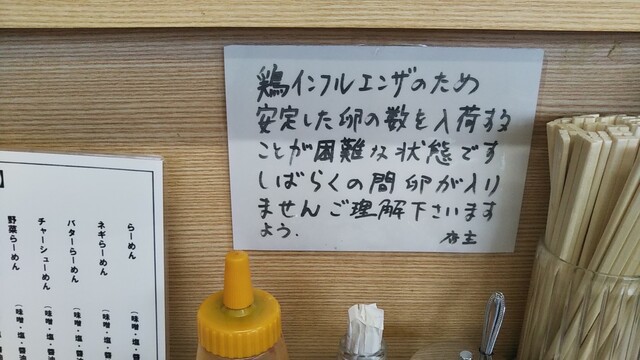 鶏インフルエンザのため
安定した卵の数を入荷する
ことが困難な状態です
しばらくの間卵が入り
ませんご理解下さいます
よう.
店主
】
らーめん（味噌・塩・醤
ネギらーめん（味噌・塩・醤
バターらーめん（味噌・塩・醤油
チャーシューめん（味噌・塩・醤油
野菜らーめん（味噌・塩・醤油